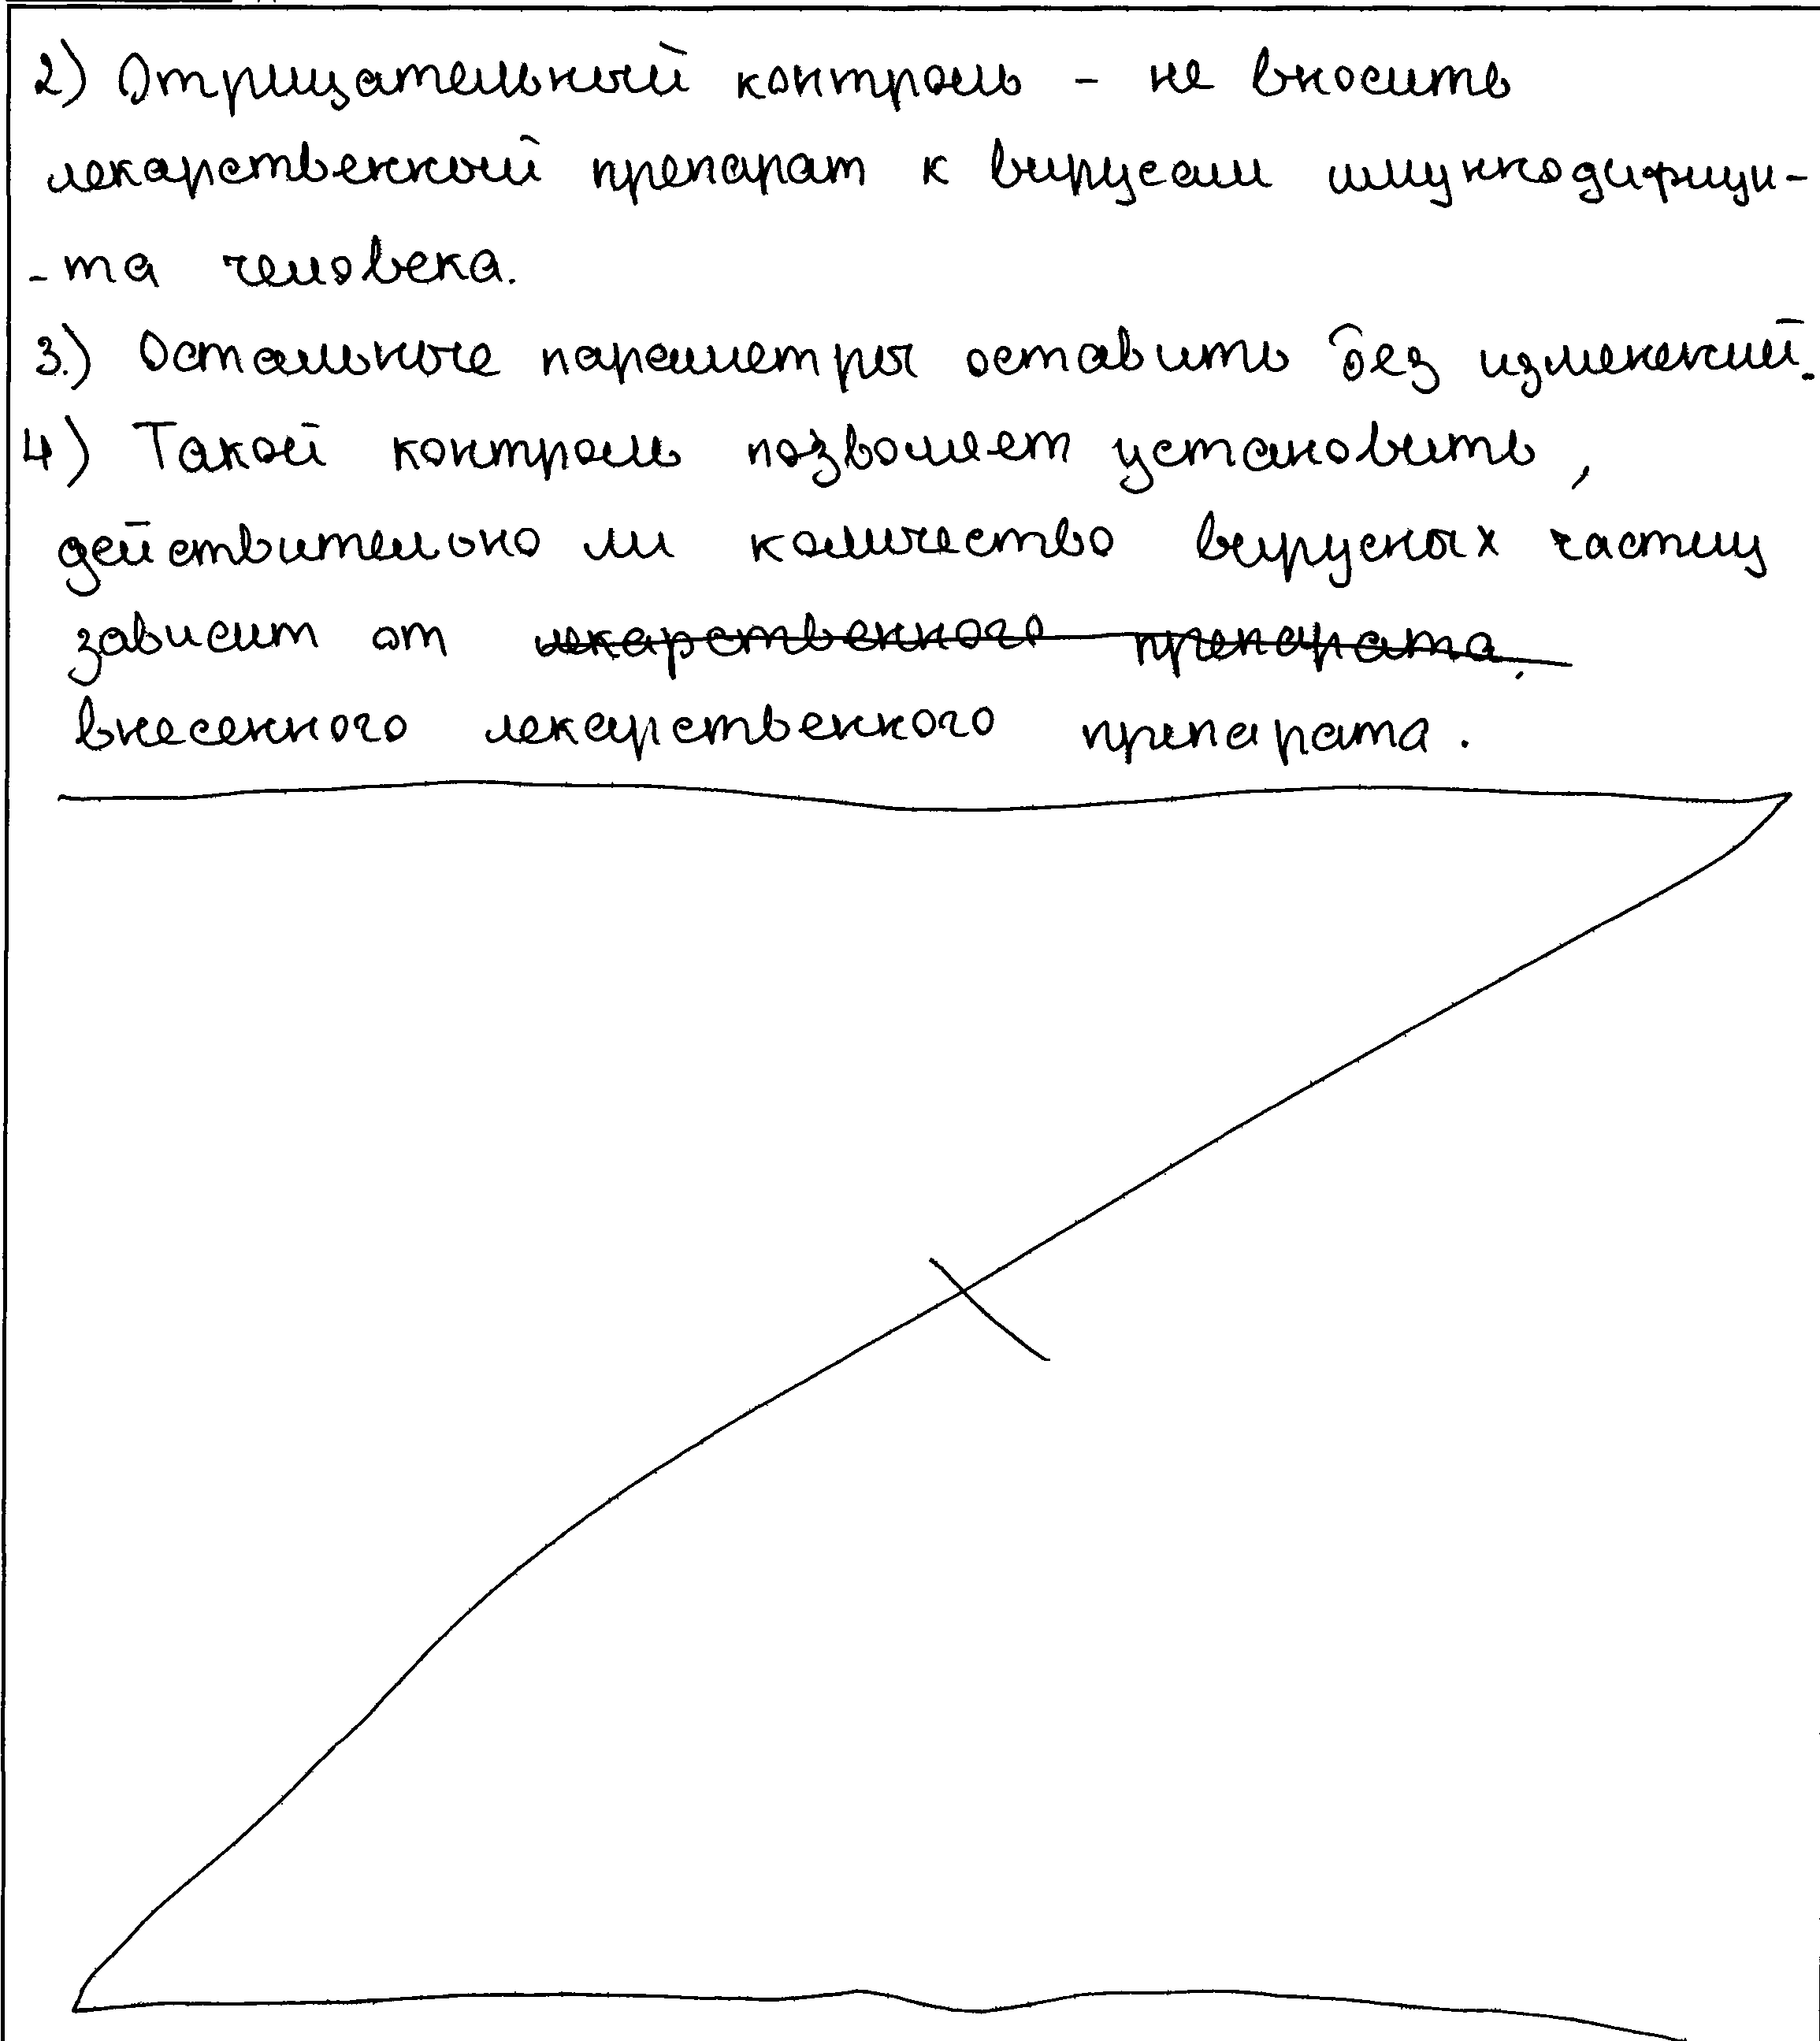 2) Отрицательный контроль - не вносить
лекарственный препарат к вирусам имуннодифици-
-та человека.
3.) Остальные параметры оставить без изменений.
4) Такой контроль позволяет установить,
действительно ли количество вирусных частиц
зависит от лекарственного препарата.
внесенного лекарственного препарата.